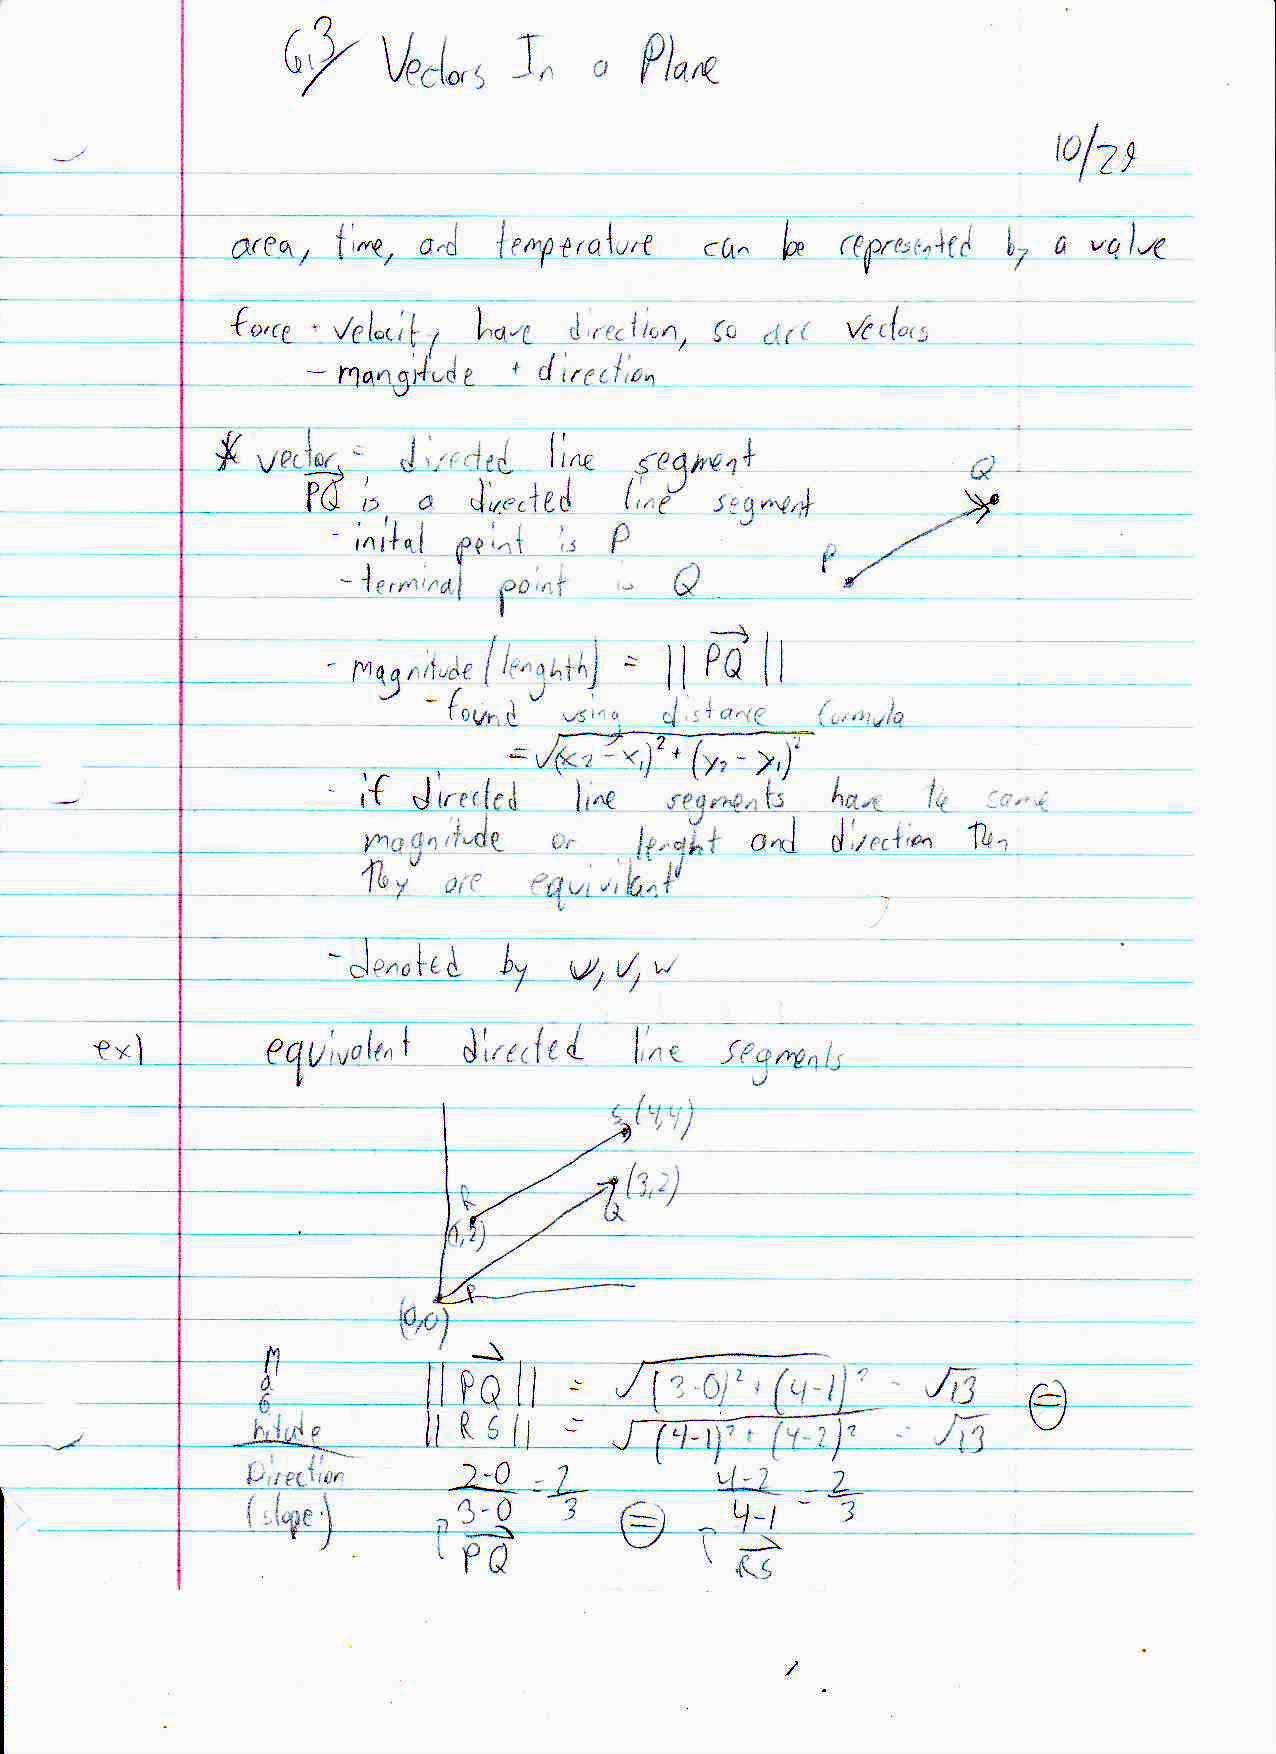 6.3/ Vectors In a Plane
10/29
area, time, and temperature can be represented by a value
force + velocity have direction, so are vectors
- mangitude + direction
* vector = directed line segment
PQ is a directed line segment
Q
- inital point is P
P
- terminal point is Q
- magnitude (lenghth) = || PQ ||
- found using distance formula
= √(x₂ - x₁)² + (y₂ - y₁)²
- if directed line segments have the same
magnitude or lenght and direction then
they are equivilant
- denoted by u, v, w
ex1 equivalent directed line segments
S (4,4)
(3,2)
R
Q
(1,2)
P
(0,0)
Magnitude
|| PQ || = √(3-0)² + (4-1)² = √13
|| RS || = √(4-1)² + (4-2)² = √13
=
Direction
(slope)
2-0/3-0 = 2/3
PQ
=
4-2/4-1 = 2/3
RS